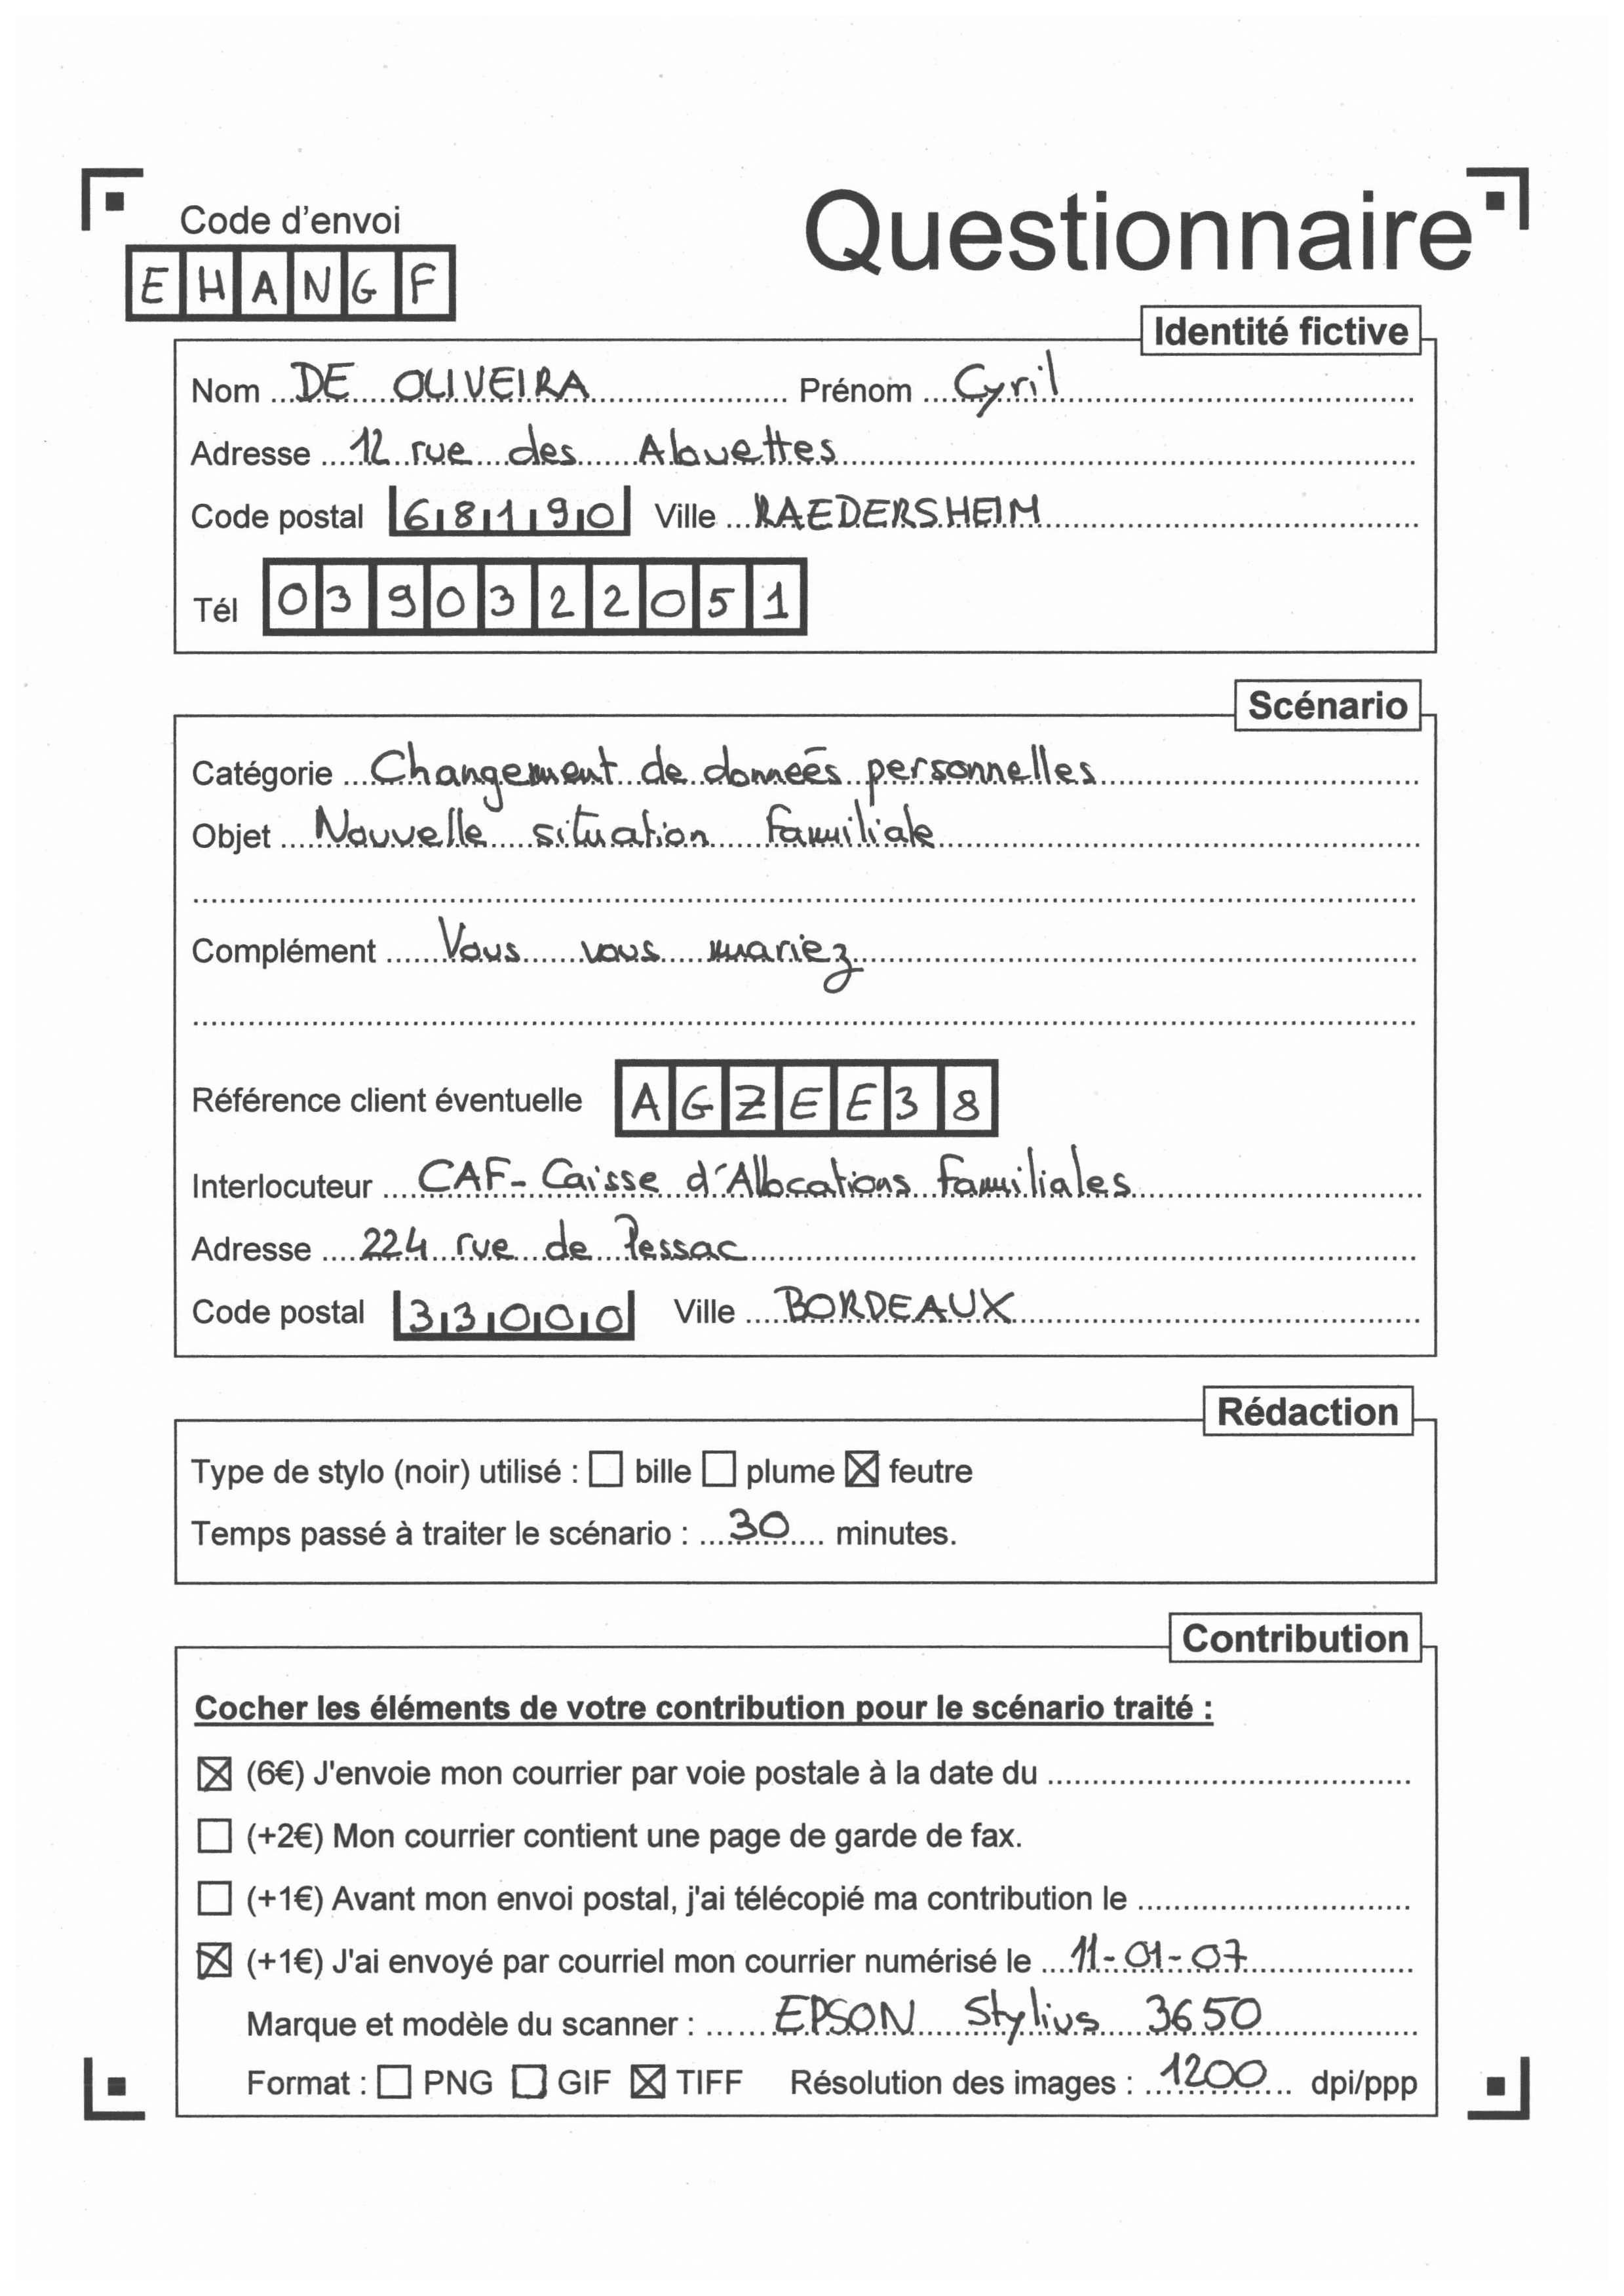 Questionnaire
Code d'envoi
EHANGF
Identité fictive
Nom DE OLIVEIRA Prénom Cyril
Adresse 12 rue des Alouettes
Code postal 68190 Ville RAEDERSHEIM
Tél 0390322051
Scénario
Catégorie Changement de données personnelles
Objet Nouvelle situation familiale
Complément Vous vous mariez
Référence client éventuelle AGZEE38
Interlocuteur CAF - Caisse d'Allocations Familiales
Adresse 224 rue de Pessac
Code postal 33000 Ville BORDEAUX
Rédaction
Type de stylo (noir) utilisé : ☐ bille ☐ plume ☒ feutre
Temps passé à traiter le scénario : 30 minutes.
Contribution
Cocher les éléments de votre contribution pour le scénario traité :
☒ (6€) J'envoie mon courrier par voie postale à la date du
☐ (+2€) Mon courrier contient une page de garde de fax.
☐ (+1€) Avant mon envoi postal, j'ai télécopié ma contribution le
☒ (+1€) J'ai envoyé par courriel mon courrier numérisé le 11-01-07
Marque et modèle du scanner : EPSON Stylius 3650
Format : ☐ PNG ☐ GIF ☒ TIFF Résolution des images : 1200 dpi/ppp